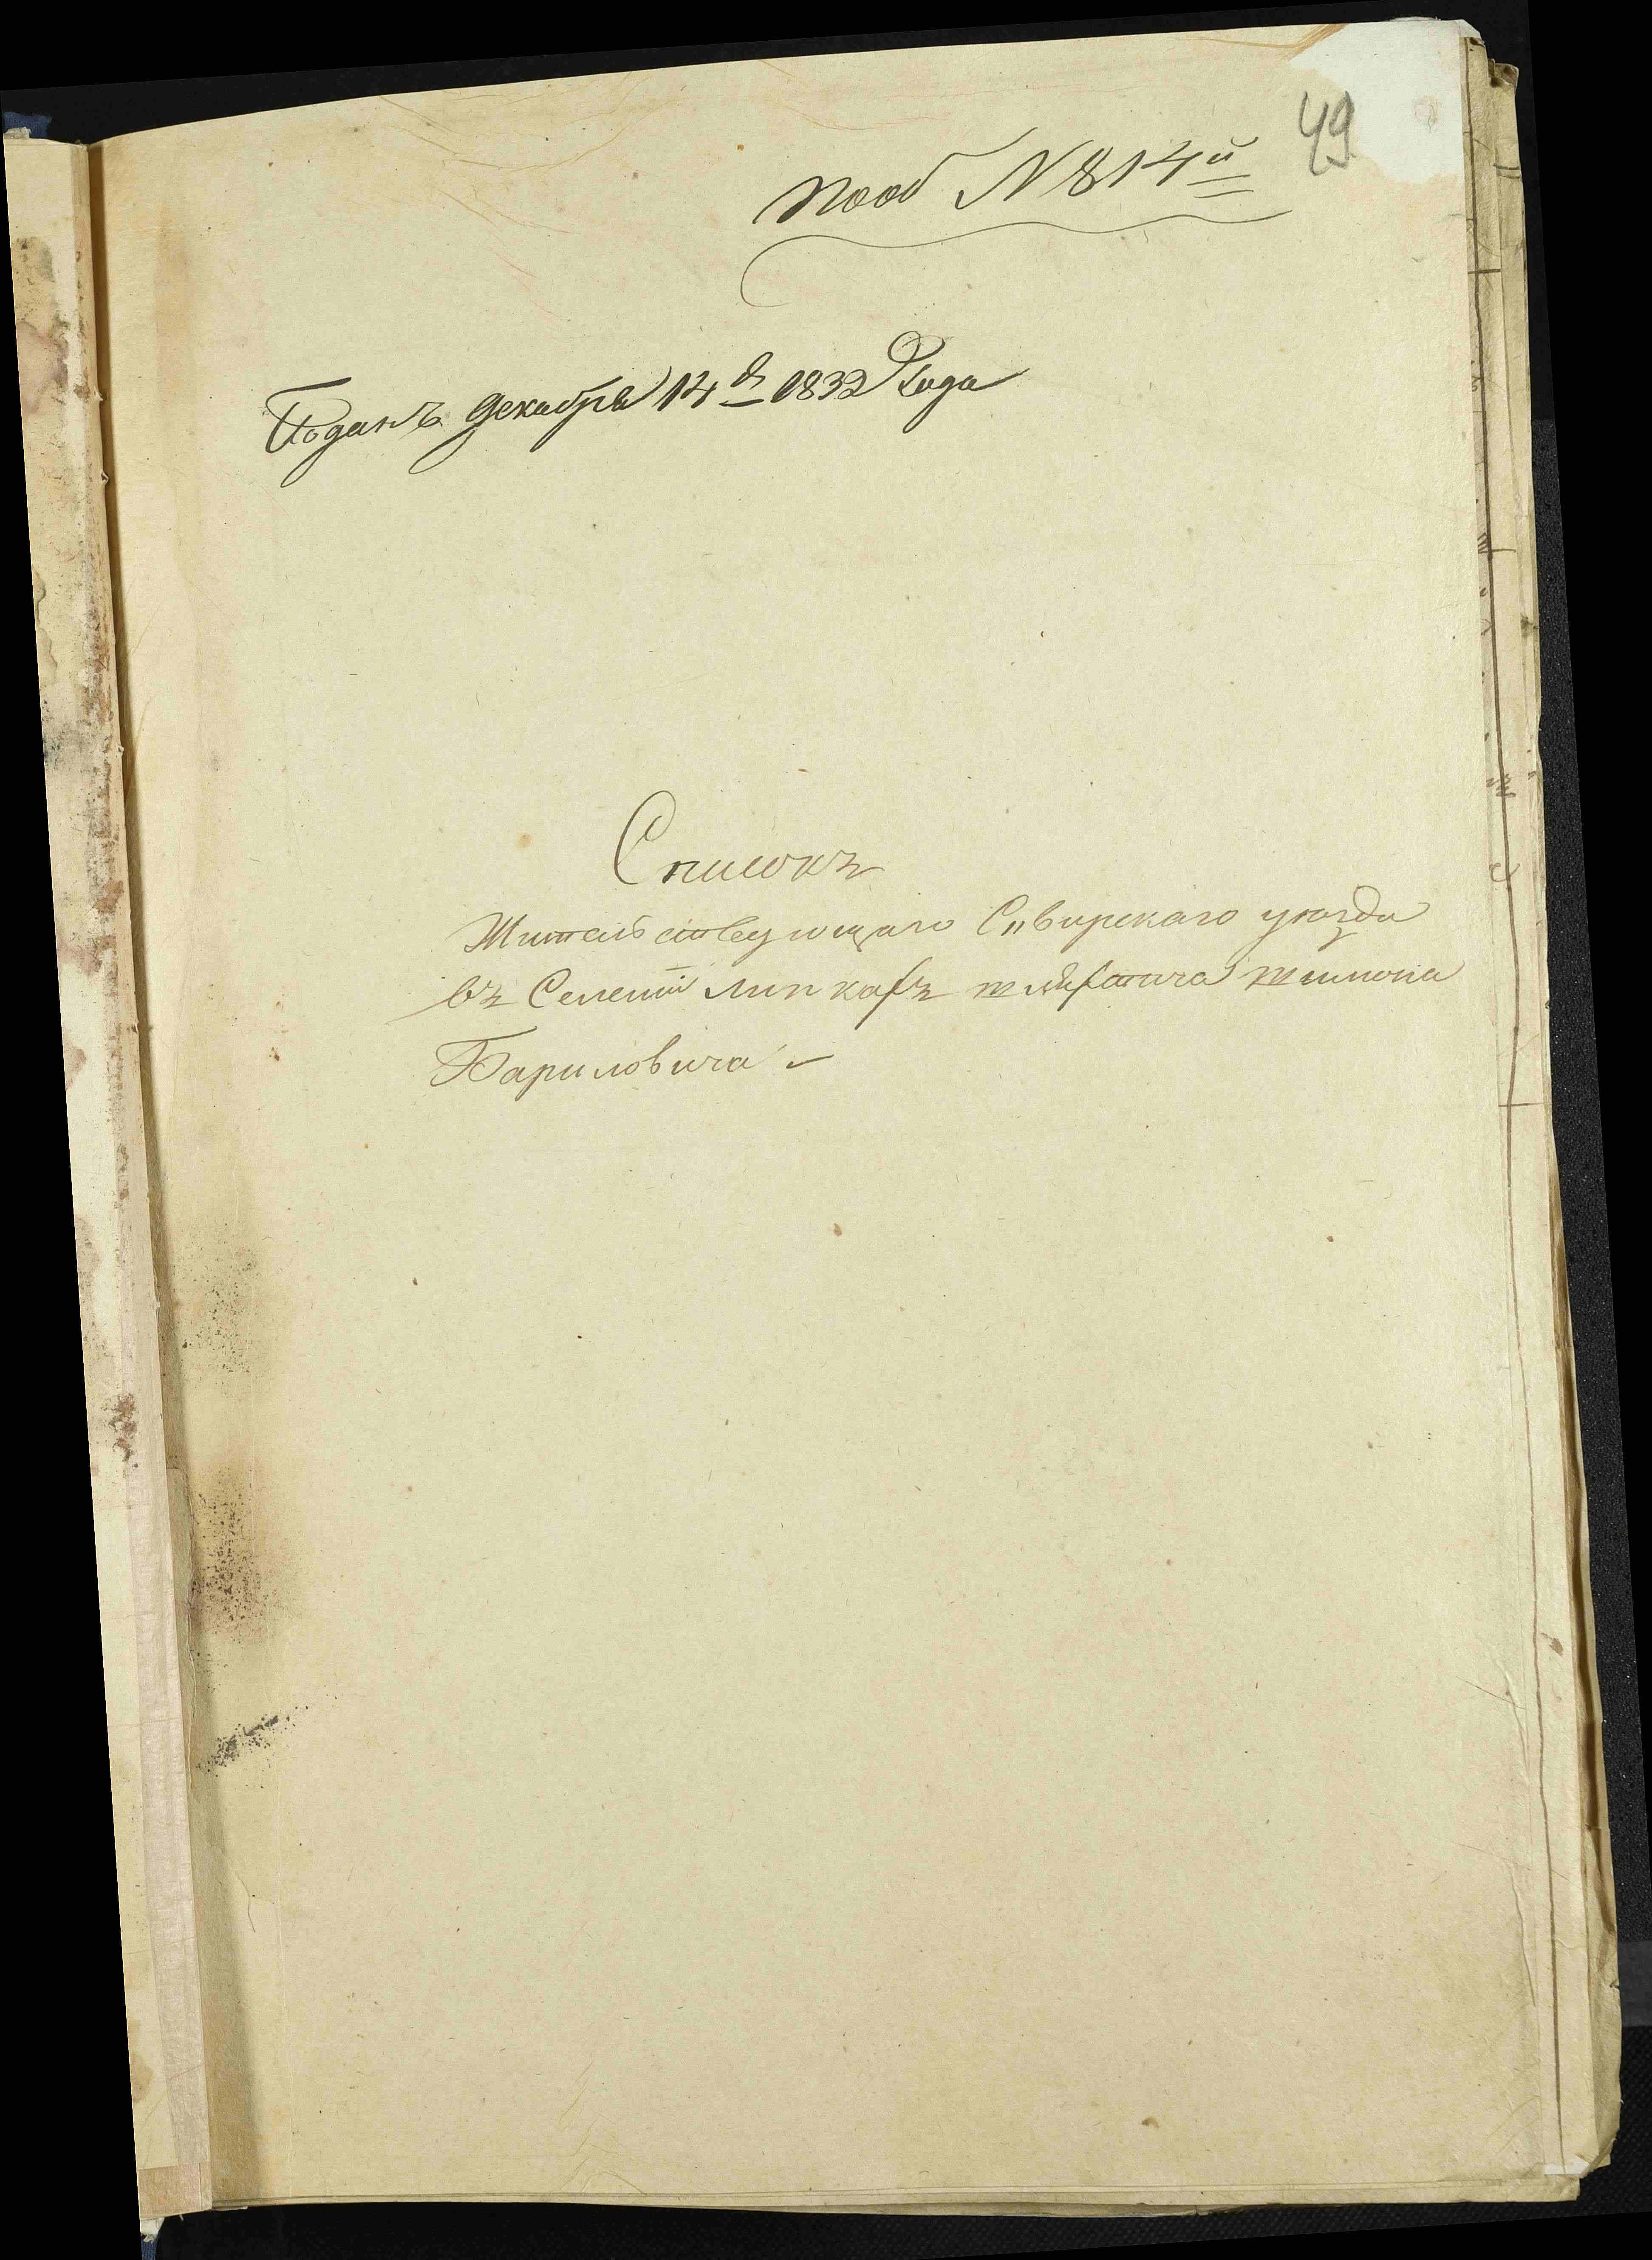 49
под N 814й
Поданъ декабря 14 д 1832 Года
Списокъ
Жительствующаго Сквирскаго уезда
въ Селени Липкахъ шляхтича шимона
Бариловича